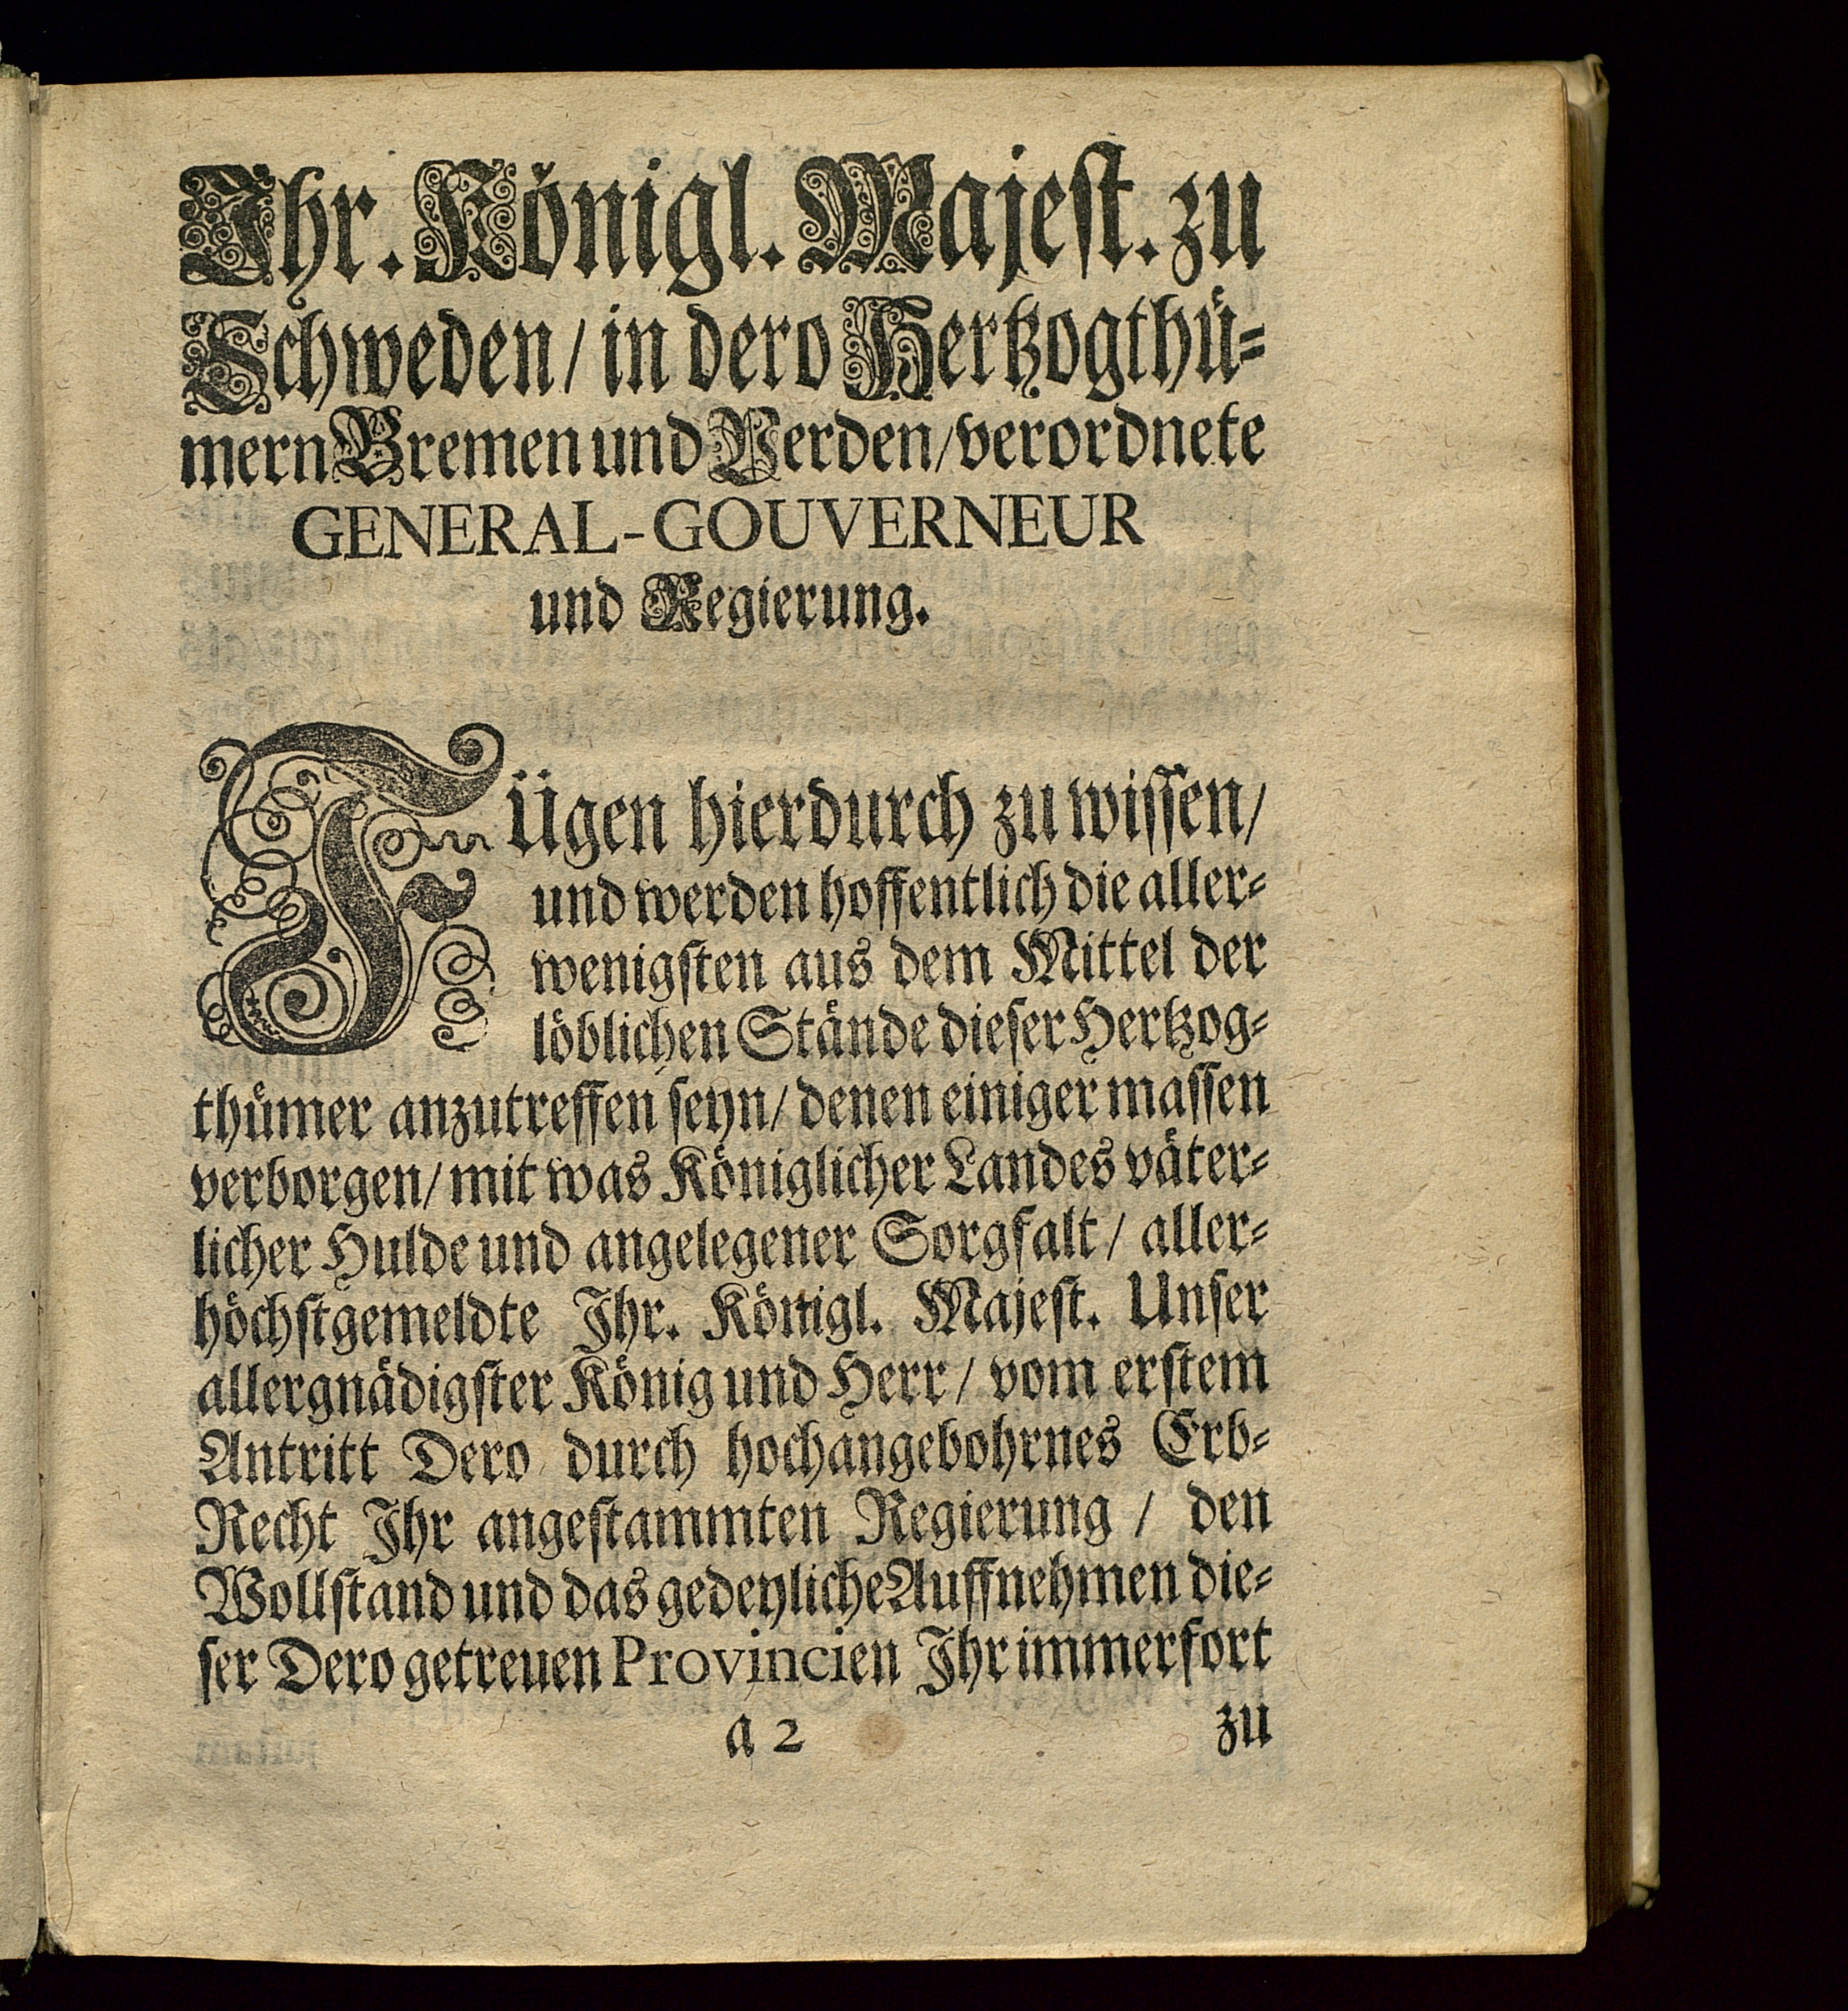 Ihr. Königl. Majest. zu
Schweden/ in dero Hertzogthü-
mern Bremen und Verden/ verordnete
GENERAL-GOUVERNEUR
und Regierung.
FÜgen hierdurch zu wissen/
und werden hoffentlich die aller-
wenigsten aus dem Mittel der
löblichen Stände dieser Hertzog-
thümer anzutreffen seyn/ denen einiger massen
verborgen/ mit was Königlicher Landes väter-
licher Hulde und angelegener Sorgfalt/ aller-
höchstgemeldte Ihr. Königl. Majest. Unser
allergnädigster König und Herr/ vom erstem
Antritt Dero durch hochangebohrnes Erb-
Recht Ihr angestammten Regierung / den
Wollstand und das gedeyliche Auffnehmen die-
ser Dero getreuen Provincien Ihr immerfort
a 2 zu